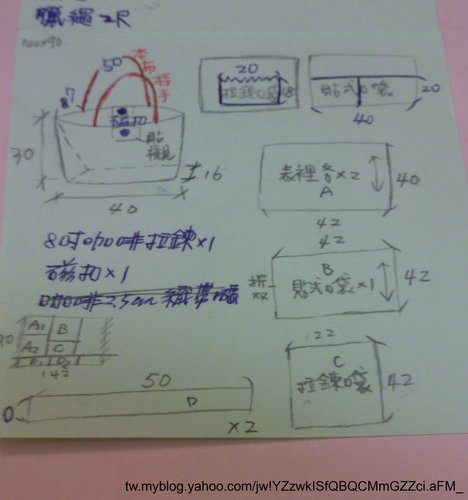 臘繩2尺
140×90
50
本布持手
7
磁扣
30
16
40
20
拉鍊口袋
18
貼式口袋
20
40
表裡各×2
A
40
42
8吋咖啡拉鍊×1
磁扣×1
咖啡2.5cm織帶
42
B
貼式口袋×1
42
A1
B
A2
C
142
22
C
拉鍊口袋
42
50
D
×2
tw.myblog.yahoo.com/jw!YZzwkISfQBQCMmGZZci.aFM_